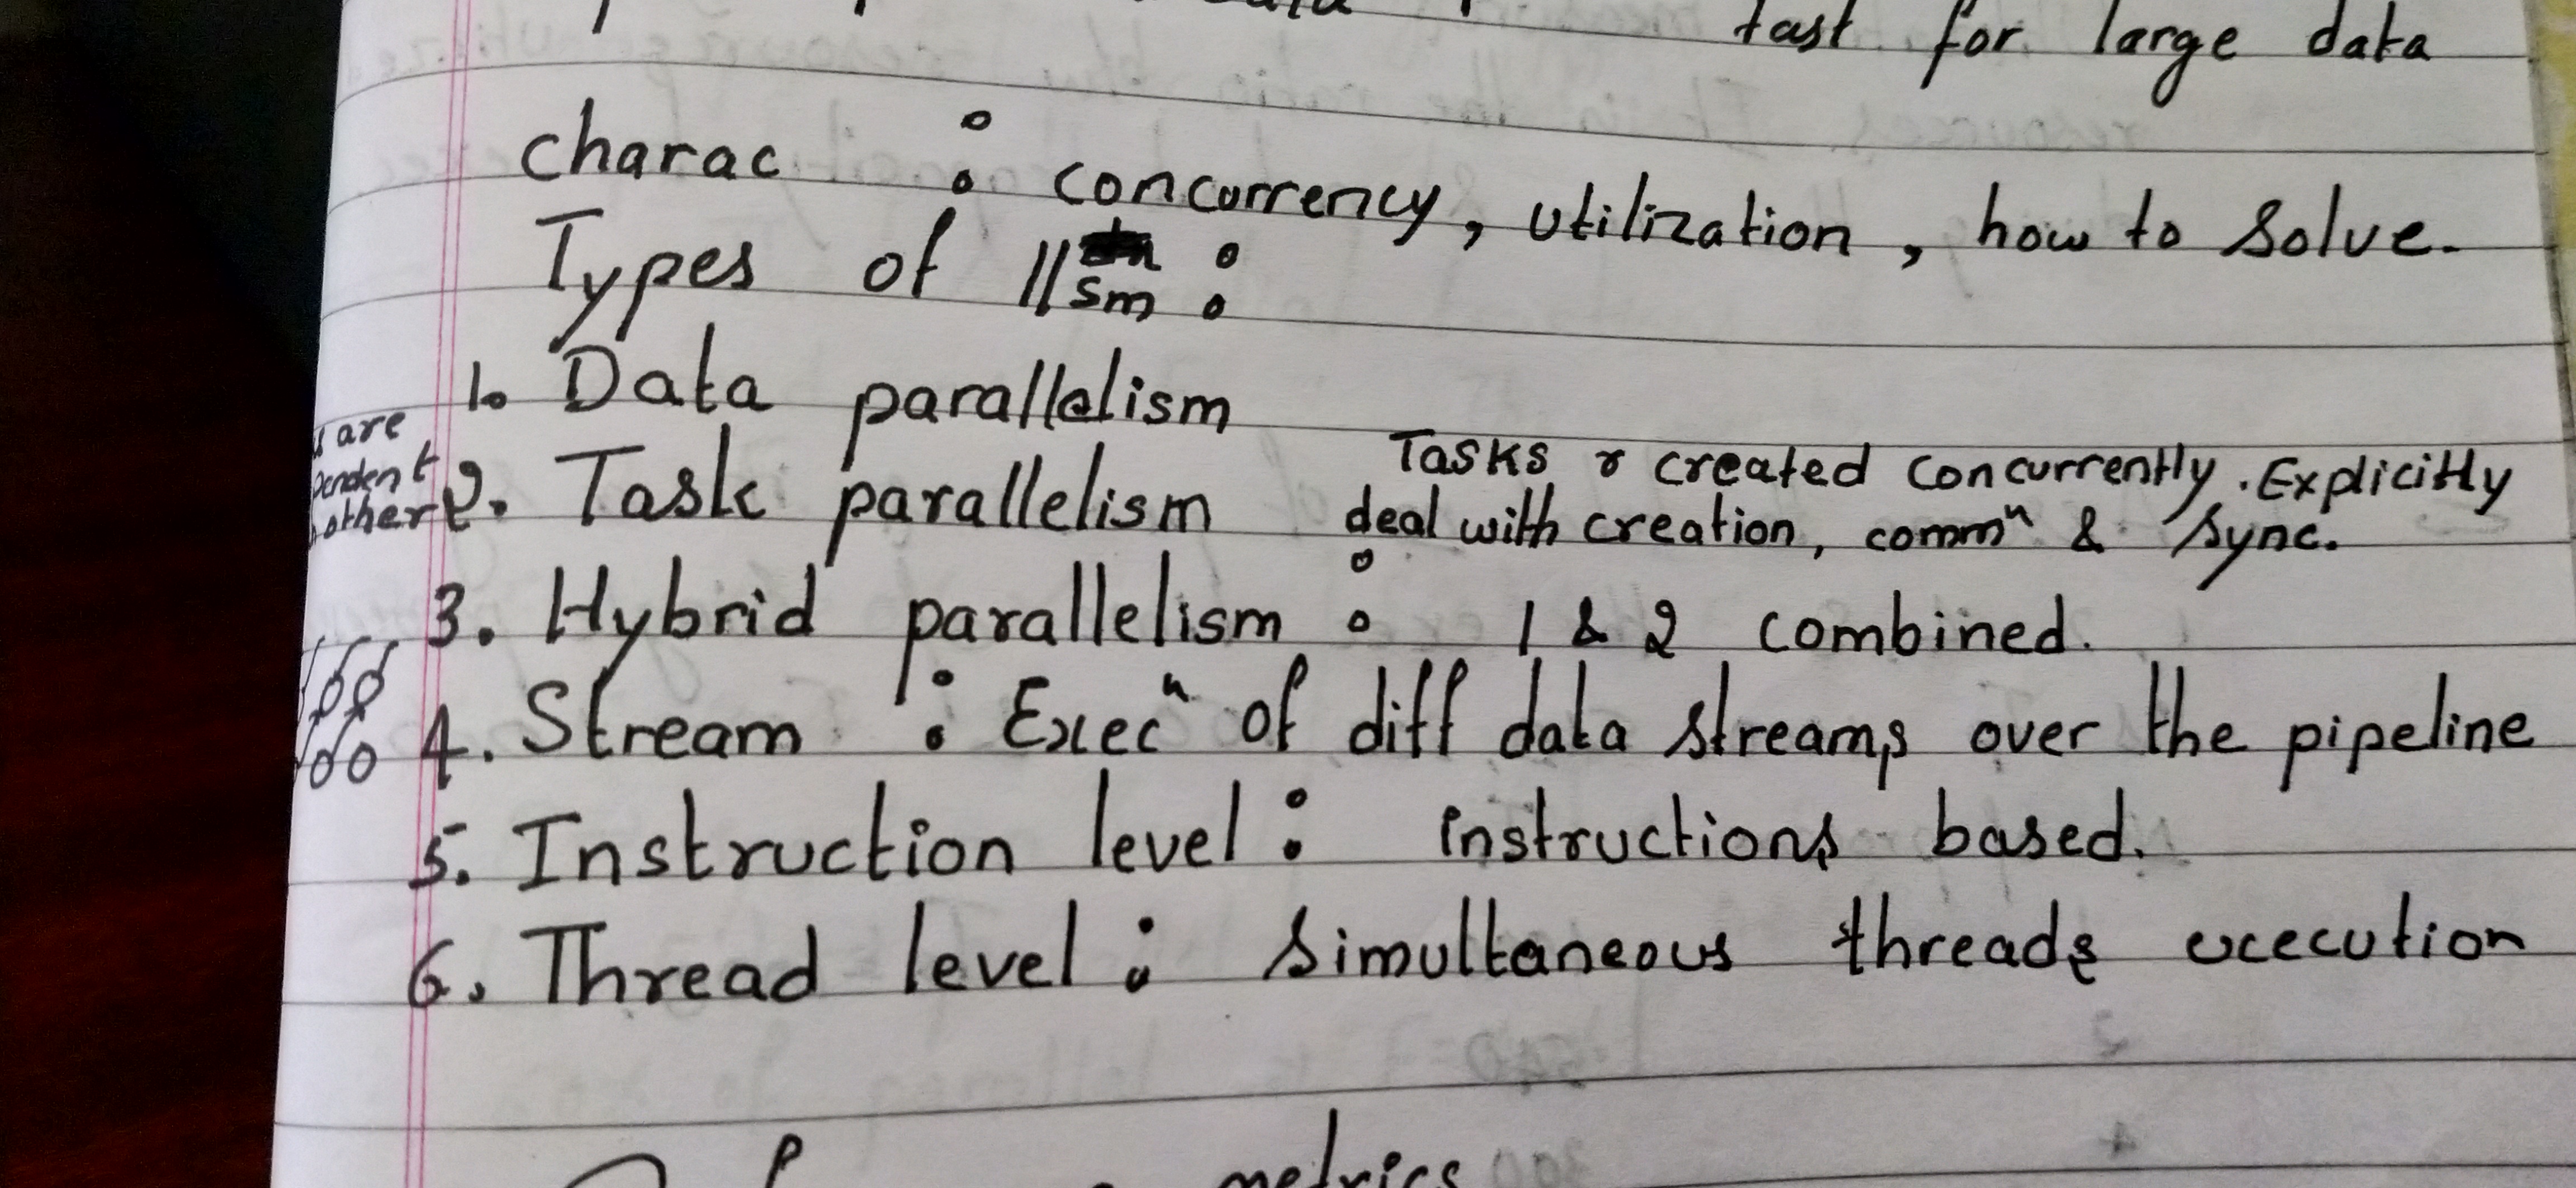 fast for large data
charac : concurrency, utilization, how to solve.
Types of ||sm :
1. Data parallelism
are
Tasks r created concurrently. Explicitly
2. Task parallelism deal with creation, commⁿ & sync.
other
3. Hybrid parallelism : 1 & 2 combined.
4. Stream : Execⁿ of diff data streams over the pipeline
5. Instruction level : instructions based.
6. Thread level : simultaneous threads execution
metrics